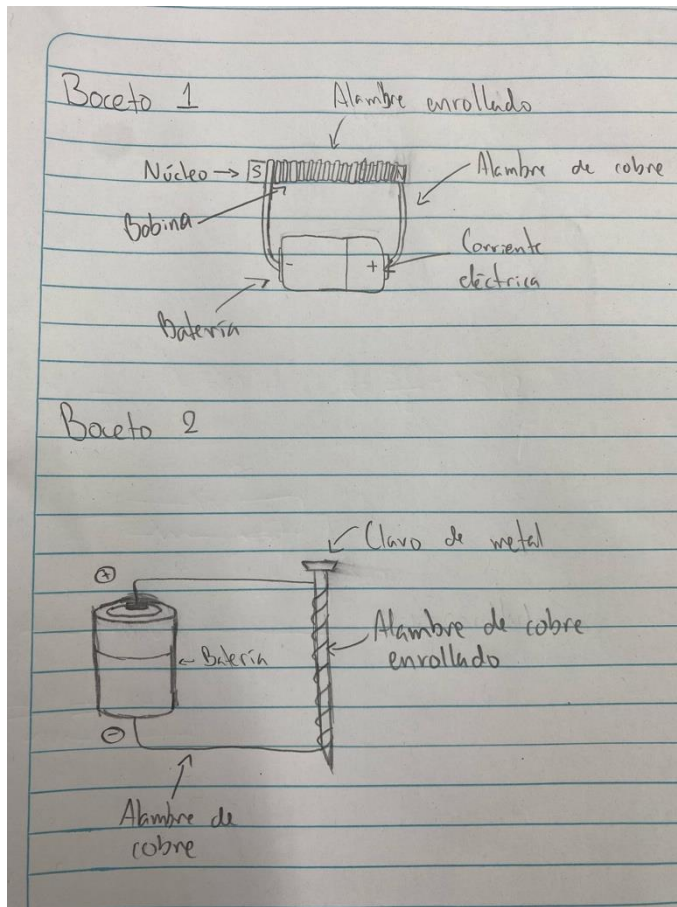 Boceto 1
Alambre enrollado
Núcleo → S
Alambre de cobre
Bobina
Corriente
eléctrica
- +
Batería
Boceto 2
Clavo de metal
+
Alambre de cobre
enrollado
Batería
-
Alambre de
cobre